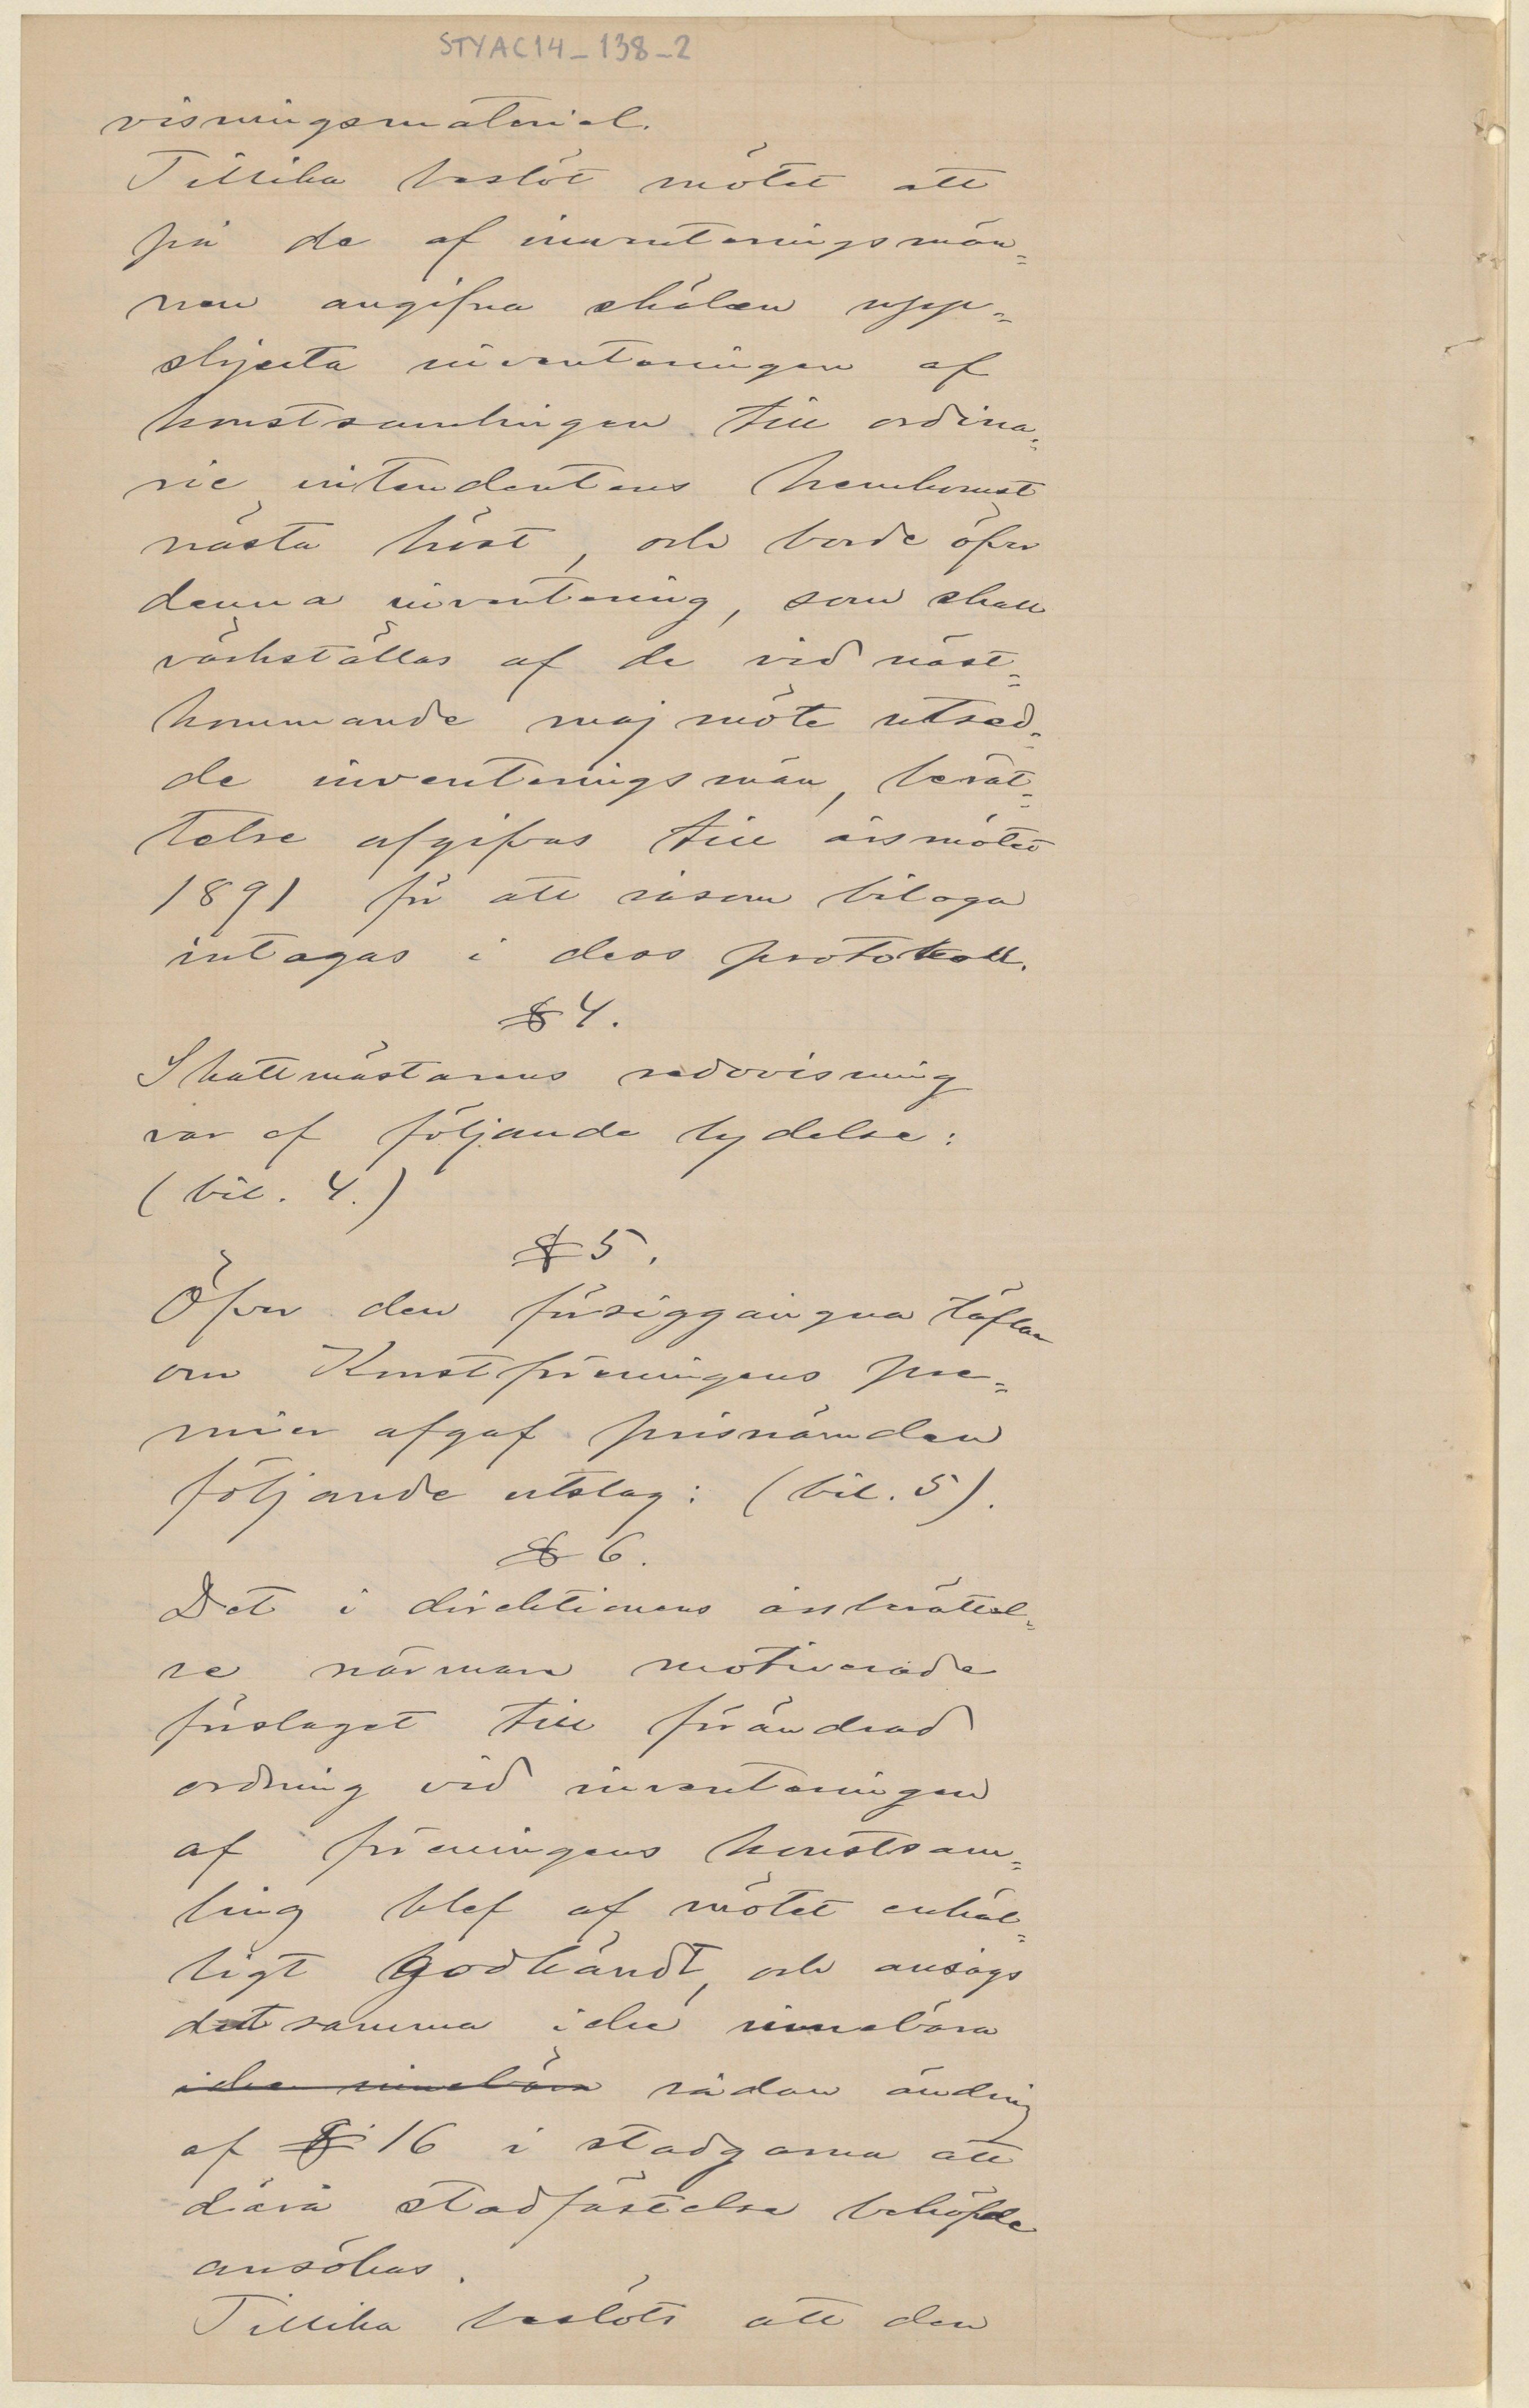 STYAC14_138_2
visningsmaterial.
Tillika beslöt mötet att
på de af inventeringsmän=
nen angifna skälen upp=
skjuta inventeringen af
konstsamlingen till ordina=
rie intendentens hemkomst
nästa höst, och borde öfver
denna inventering, som skall
värkställas af de vid näst=
kommande majmöte utsed=
de inventeringsmän, berät=
telse afgifvas till årsmötet
1891 för att såsom bilaga
intagas i dess protokoll.
§ 4.
Skattmästarens redovisning
var af följande lydelse:
(bil. 4.)
§ 5.
Öfver den försiggångna täflan
om Konstföreningens pre=
mier afgaf prisnämnden
följande utslag: (bil. 5).
§ 6.
Det i direktionens årsberättel=
se närmare motiverade
förslaget till förändrad
ordning vid inventeringen
af föreningens konstsam=
ling blef af mötet enhäl=
ligt godkändt, och ansågs
detsamma icke innebära
icke innebära sådan ändring
af § 16 i stadgarna att
därå stadfästelse behöfde
ansökas.
Tillika beslöts att den